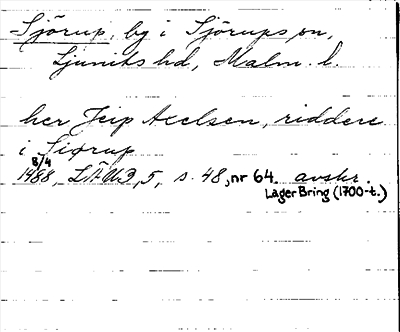 Sjörup, by i Sjörups sn,
Ljunits hd, Malm. l.
her Jeip Axelsen, riddere
i Siørup
8/4
1488, LÄU3, 5, s. 48, nr 64. avskr.
LagerBring (1700-t.)